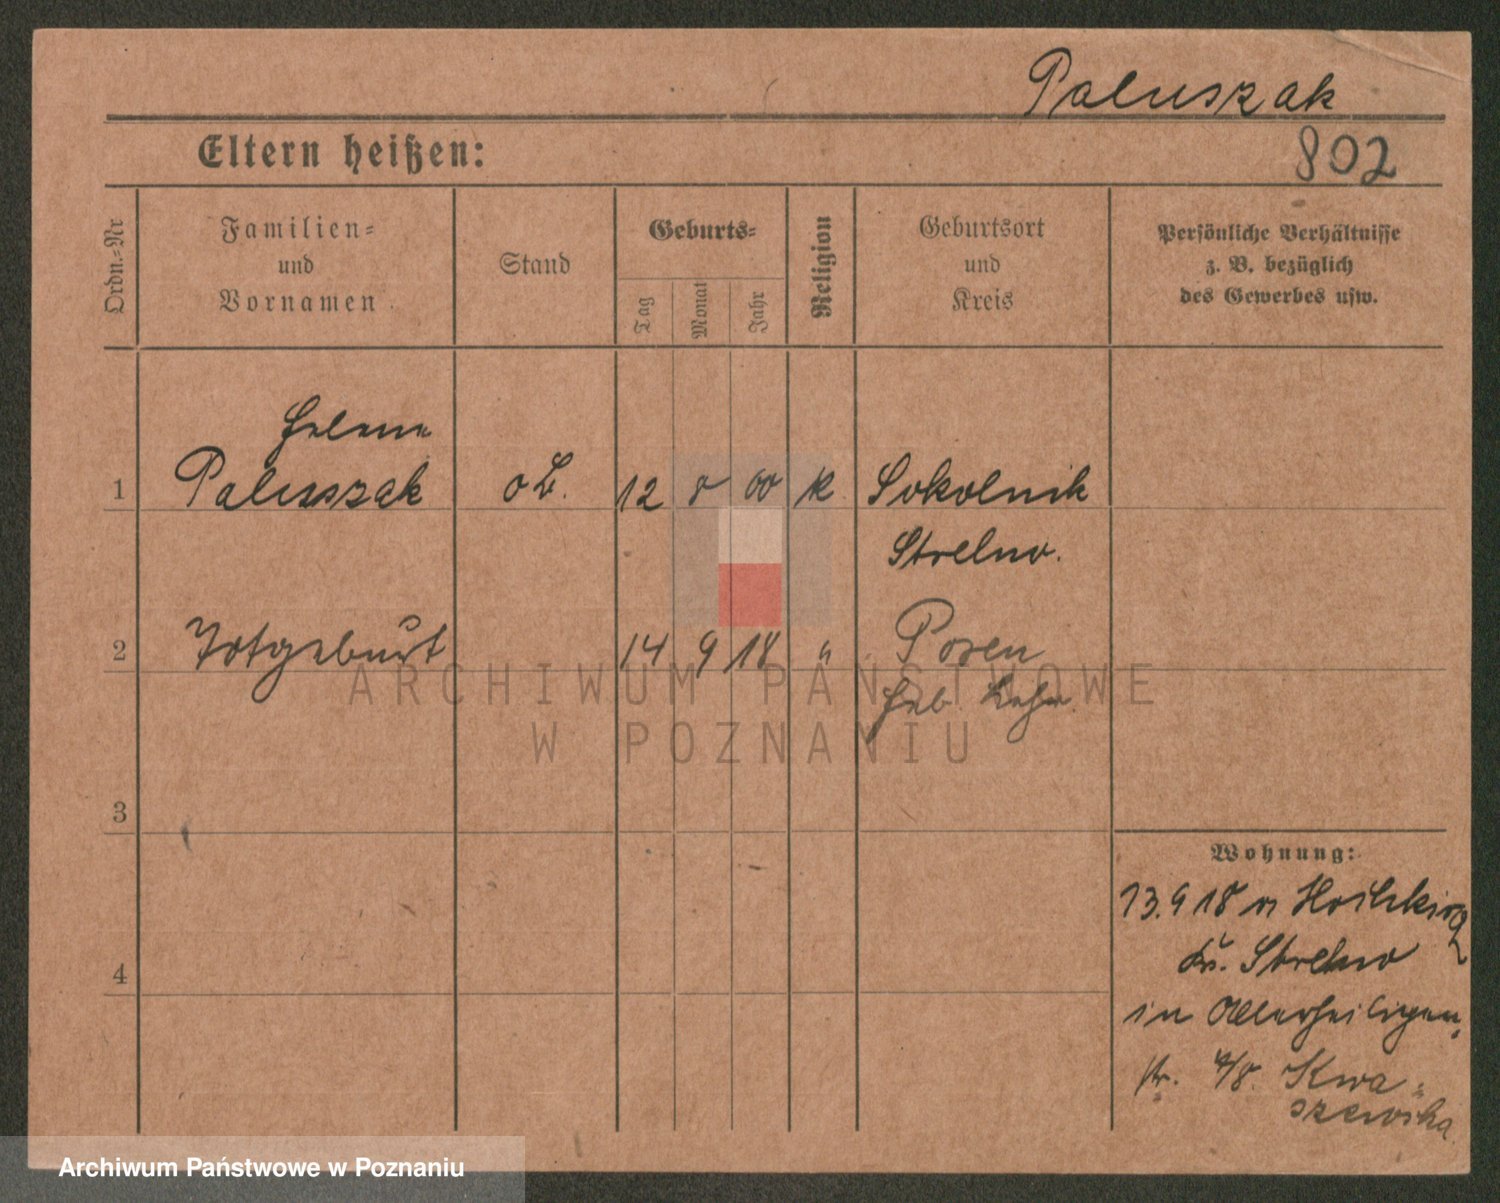 Paluszak
Eltern heißen:
802
Ordn.-Nr
Familien-
und
Vornamen.
Stand
Geburts-
Tag
Monat
Jahr
Religion
Geburtsort
und
Kreis
Persönliche Verhältnisse
z. B. bezüglich
des Gewerbes usw.
Helene
1 Paluszak o B. 12 8 00 K Sokolnik
Strelno.
2 Totgeburt 14 9 18 " Posen
Heb. Lehr.
3
4
Wohnung:
13.9 18 v
Kr. Strelno
in Allerheiligen
str. 4/8. Kwa-
szewska
ARCHIWUM PAŃSTWOWE
W POZNANIU
Archiwum Państwowe w Poznaniu